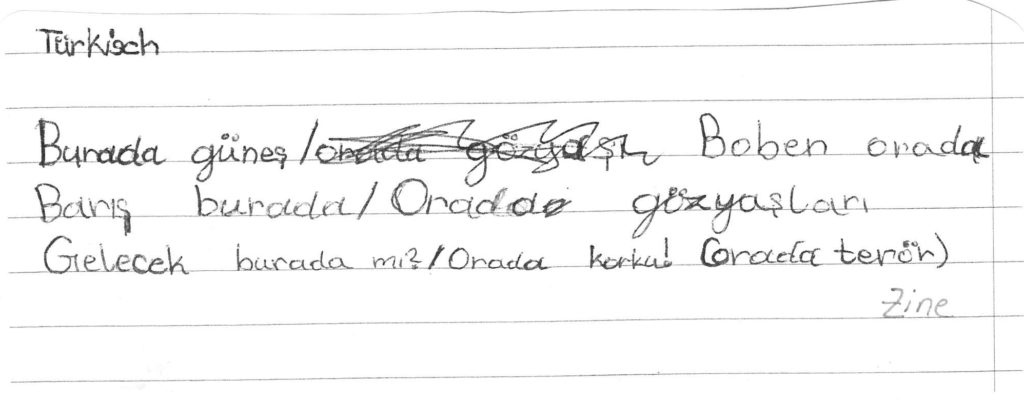 Türkisch
Burada güneş / orada gözyaşı Boben orada
Barış burada / Orada gözyaşları
Gelecek burada mı? / Orada korku! (orada terör)
Zine